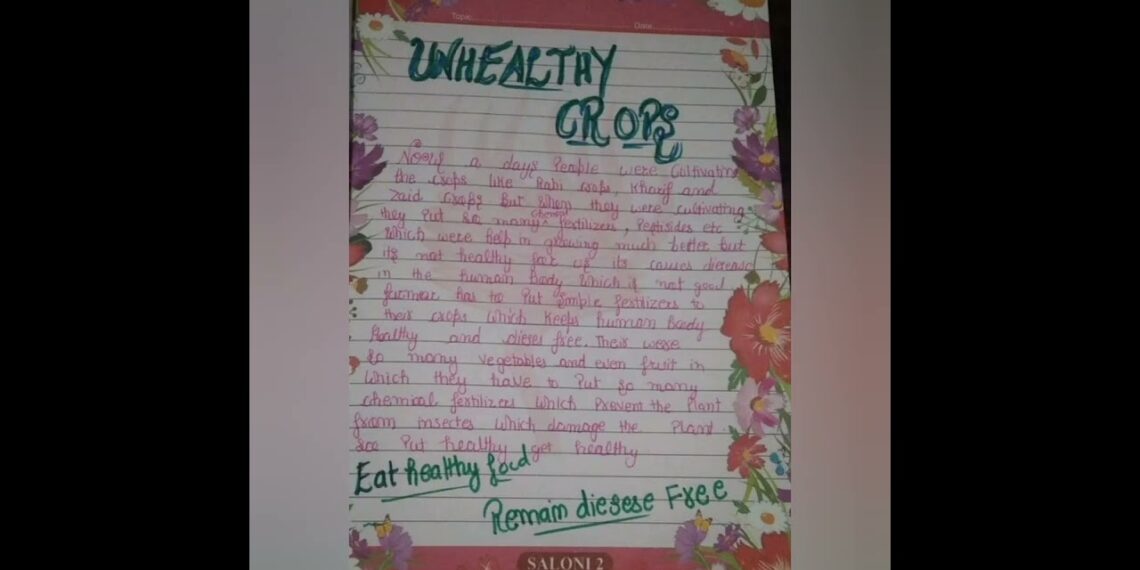 Topic
Date
UNHEALTHY
CROPS
Noow a days People were Cultivating
the crops like Rabi crops, Kharif and
zaid crops But when they were cultivating
they Put so many chemical fertilizers, Pestisides etc
which were help in growing much better but
its not healthy for us its causes diesease
in the human Body which is not good
farmer has to Put simple fertilizers to
their crops which keeps human Body
Healthy and dieses free. Their were
so many vegetables and even fruit in
which they have to Put so many
chemical fertilizers which Prevent the Plant
from insectes which damage the Plant.
Put healthy get healthy
Eat healthy food
Remain diesese Free
SALONI 2